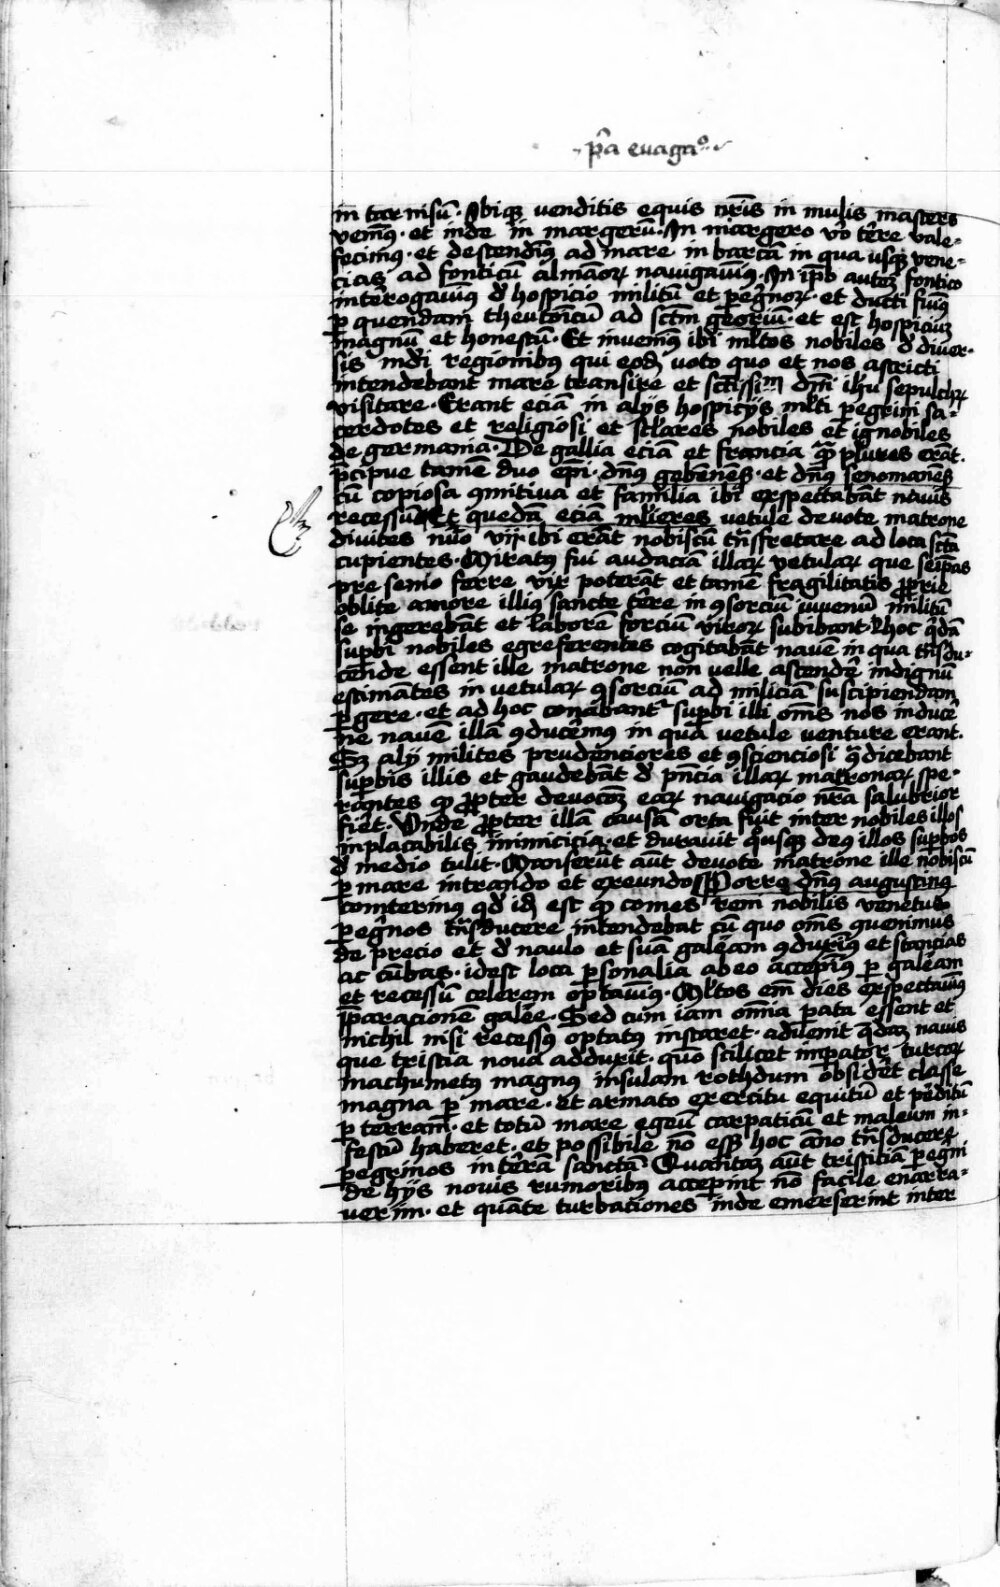 p̄a euagaº
in taruisū. Ibiqꝫ venditis equis nr̄is in mulis masters
venimꝰ. et inde in margerū. In margero vō t̄re vale-
fecimꝰ. et descendimꝰ ad mare in barcā in qua usqꝫ vene-
cias ad fonticū almanoꝝ nauigauimꝰ. In ip̄o auteꝫ fontico
interogauimꝰ d̄ hospicio militū et pegrinoꝝ. et ducti fuimꝰ
ꝑ quendam theutoricū ad sctm̄ georiū. et est hospiciū
magnū et honestū. Et inuenimꝰ ibi ml̄tos nobiles d̄ diuer-
sis mūdi regionibꝰ qui eodē voto quo et nos astricti
intendebant mare transire et sctissim̄ dn̄i ih̄u sepulchrꝝ
visitare. Erant eciā in alijs hospicijs ml̄ti pegrini sa-
cerdotes et religiosi et sc̄lares nobiles et ignobiles
de germania. De gallia eciā et francia ꝗ̄ plures erāt.
p̄cipue tamē duo ep̄i. dn̄s gebenēs̄. et dn̄s senomanēs̄
cū copiosa ꝯmitiua et familia ibi exspectabāt nauis
recessū. Et quedā eciā ml̄ieres vetule deuote matrone
diuites nūo vij. ibi erāt nobiscū trāsfretare ad loca sctā
cupientes. Miratꝰ fui audaciā illaꝝ vetulaꝝ que seip̄as
pre senio ferre vix poterāt et tamē fragilitatis ꝓprie
oblite amore illiꝰ sancte t̄re in ꝯsorciū iuuenū militū
se ingerebāt et labore forciū viroꝝ subibant. Ob hoc q̄dā
supbi nobiles egreferentes cogitabāt nauē in qua trāsdu-
cende essent ille matrone non velle ascendē indignū
estimātes in vetulaꝝ ꝯsorciū ad miliciā suscipiendam
ꝑgere. et ad hoc conabant̄ supbi illi om̄s nos inducē
ne nauē illā ꝯducēmꝰ in qua vetule venture erant.
Sꝫ alij milites prudēnciores et ꝯscienciosi ꝯ̄dicebant
supbis illis et gaudebāt d̄ pn̄cia illaꝝ matronaꝝ spe-
rantes ꝙ ꝓpter deuocōꝫ eaꝝ nauigacio nr̄a salubrior
fiet. Unde ꝓpter illā causā orta fuit inter nobiles illos
inplacabilis inimicicia. et durauit q̄usqꝫ deꝰ illos supbos
d̄ medio tulit. Manserūt aūt deuote matrone ille nobiscū
ꝑ mare intrando et exeundo. Porro dn̄s augustinꝰ
comterinꝰ qd̄ id̄ est ꝙ comes reni nobilis venetus
pegrinos trāsducere intendebat cū quo om̄s ꝯuenimus
de precio et d̄ naulo et suā galeam ꝯduximꝰ et stancias
ac cūbas. idest loca ꝑsonalia ab eo accepimꝰ ꝑ galeam
et recessū celerem optauimꝰ. Ml̄tos em̄ dies exspectauimꝰ
p̄paracionē galee. Sed cum iam om̄ia p̄ata essent et
nichil nisi recessꝰ optatꝰ instaret. aduenit q̄daꝫ nauis
que tristia noua adduxit. quō scilicet inpator turcoꝝ
machumetꝰ magnꝰ insulam rothdum obsidēt classe
magna ꝑ mare. et armato exercitu equitū et peditū
ꝑ terram. et totū mare egeū carpaticū et maleum in-
festū haberet. et possibile nō ess̄ hoc āno trāsducere
pegrinos in terā sanctā. Quantaꝫ aūt tristiciā pegrini
de hijs nouis rumoribꝰ acceperint nō facile enarra-
uerim. et quāte turbationes inde emerserint inter